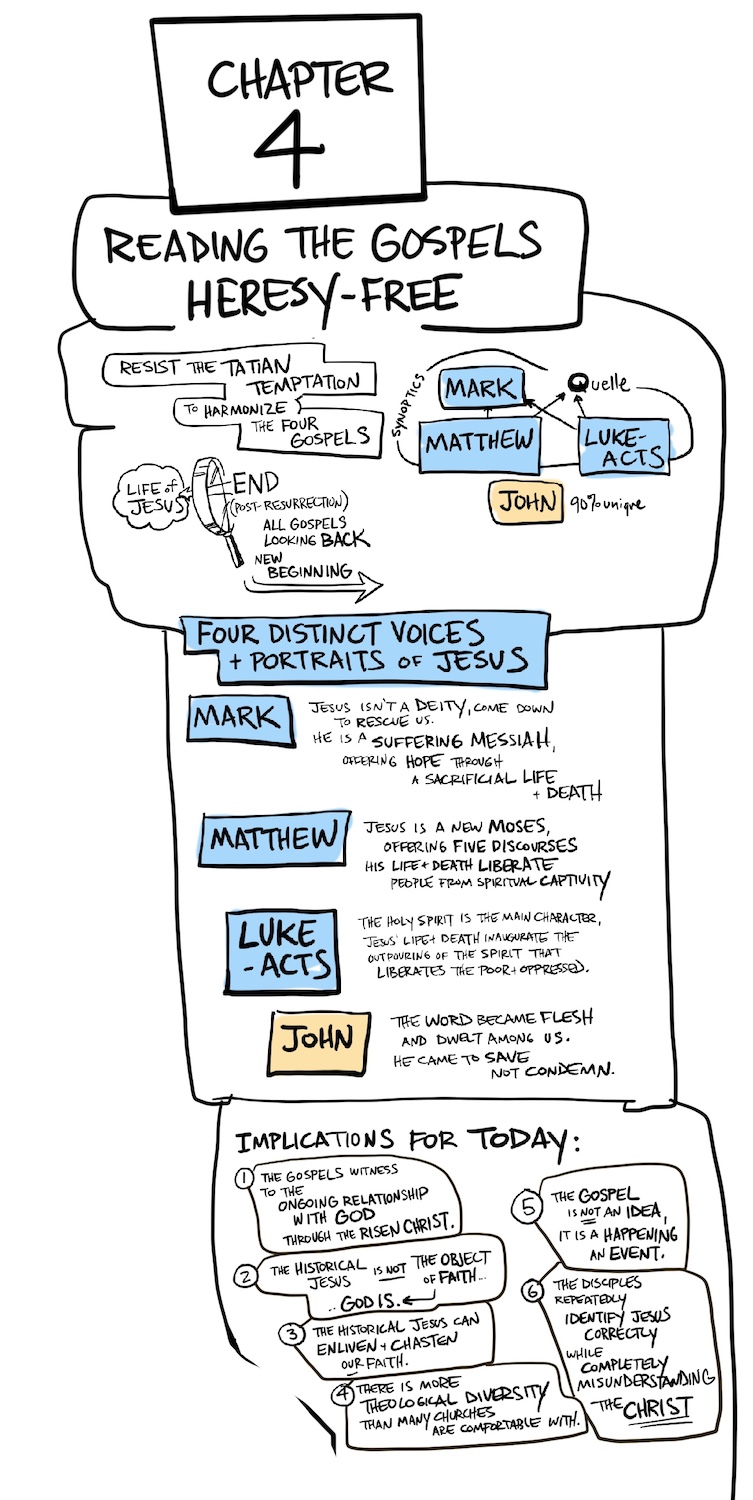 CHAPTER
4
READING THE GOSPELS
HERESY-FREE
RESIST THE TATIAN
TEMPTATION
TO HARMONIZE
THE FOUR
GOSPELS
SYNOPTICS
MARK
Quelle
MATTHEW
LUKE-
ACTS
JOHN
90% unique
LIFE of
JESUS
END
(POST-RESURRECTION)
ALL GOSPELS
LOOKING BACK
NEW
BEGINNING
FOUR DISTINCT VOICES
+ PORTRAITS OF JESUS
MARK
JESUS ISN'T A DEITY, COME DOWN
TO RESCUE US.
HE IS A SUFFERING MESSIAH,
OFFERING HOPE THROUGH
A SACRIFICIAL LIFE
+ DEATH
MATTHEW
JESUS IS A NEW MOSES,
OFFERING FIVE DISCOURSES
HIS LIFE + DEATH LIBERATE
PEOPLE FROM SPIRITUAL CAPTIVITY
LUKE
-ACTS
THE HOLY SPIRIT IS THE MAIN CHARACTER,
JESUS' LIFE + DEATH INAUGURATE THE
OUTPOURING OF THE SPIRIT THAT
LIBERATES THE POOR + OPPRESSED.
JOHN
THE WORD BECAME FLESH
AND DWELT AMONG US.
HE CAME TO SAVE
NOT CONDEMN.
IMPLICATIONS FOR TODAY:
1 THE GOSPELS WITNESS
TO THE
ONGOING RELATIONSHIP
WITH GOD
THROUGH THE RISEN CHRIST.
2 THE HISTORICAL JESUS IS NOT THE OBJECT
OF FAITH...
.. GOD IS.
3 THE HISTORICAL JESUS CAN
ENLIVEN + CHASTEN
OUR FAITH.
4 THERE IS MORE
THEOLOGICAL DIVERSITY
THAN MANY CHURCHES
ARE COMFORTABLE WITH.
5 THE GOSPEL
IS NOT AN IDEA,
IT IS A HAPPENING
AN EVENT.
6 THE DISCIPLES
REPEATEDLY
IDENTIFY JESUS
CORRECTLY
WHILE
COMPLETELY
MISUNDERSTANDING
THE CHRIST